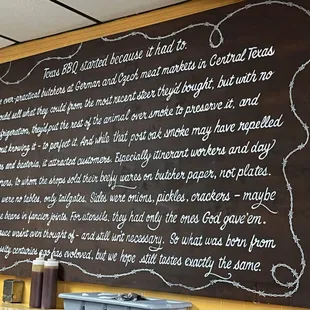 Texas BBQ started because it had to.
ever-practical butchers at German and Czech meat markets in Central Texas
could sell what they could from the most recent steer they'd bought, but with no
refrigeration, they'd put the rest of the animal over smoke to preserve it, and
knowing it - to perfect it. And while that post oak smoke may have repelled
and bacteria, it attracted customers. Especially itinerant workers and day
to whom the shops sold their beefy wares on butcher paper, not plates.
were no tables, only tailgates. Sides were onions, pickles, crackers - maybe
beans in fancier joints. For utensils, they had only the ones God gave'em.
wasn't even thought of - and still isn't necessary. So what was born from
centuries ago has evolved, but we hope still tastes exactly the same.